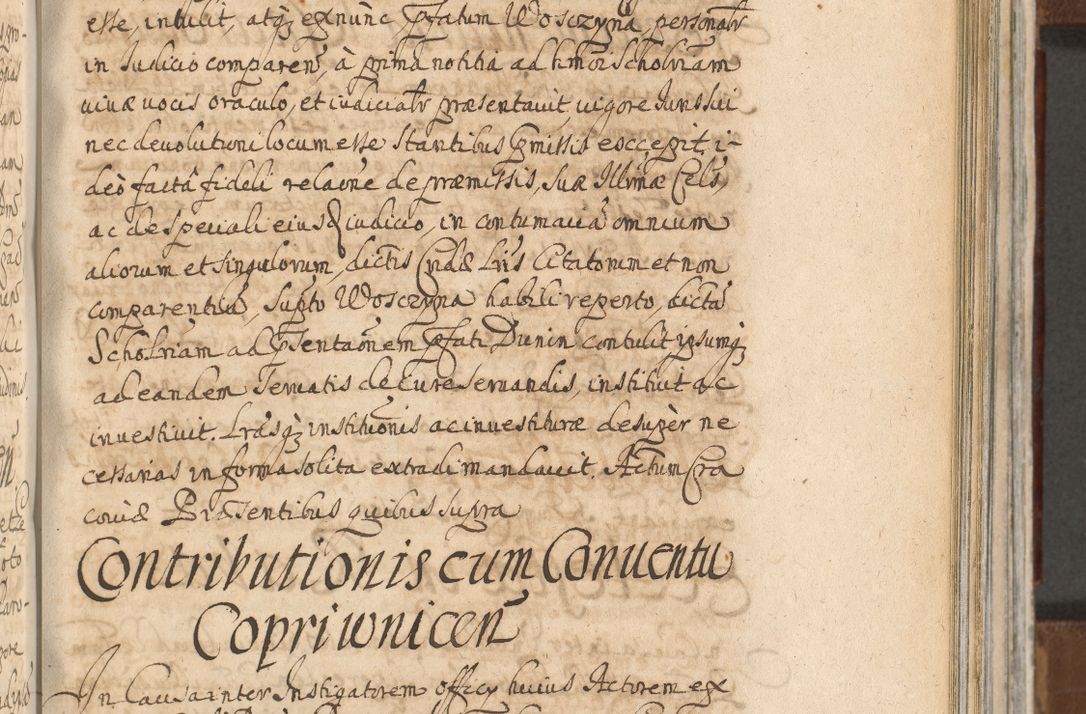 esse, intulit, atq3 ex nunc pfatum Wosczyna, personalr
in Iudicio comparen, à prima notitia ad hmoi Scholriam
viuæ vocis oraculo, et iudicialr præsentauit, vigore Iuns sui
nec deuolutioni locum esse stantibus pmissis excepit, i-
deò factâ fideli relaone de præmissis, suæ Illmæ Cels,
ac de speciali eiusq iudicio, in contumaciâ omnium
aliorum et singulorum, dictis Cndæ Lris Citatorum et non
comparentiû, supto Wosczyna habili reperto, dictâ
Scholriam ad psentaonem pfati Dunin contulit ipsumq3
ad eandem seruatis de iure seruandis, instituit ac
inuestiuit. Lrasq3 institutionis ac inuestituræ desupèr ne
cessarias in forma solita extradi mandauit. Actum Cra
couiæ Præsentibus quibus supra
Contributionis cum Conuentu
Copriwnicen
In Causa inter Instigatorem officy huius Actorem ex